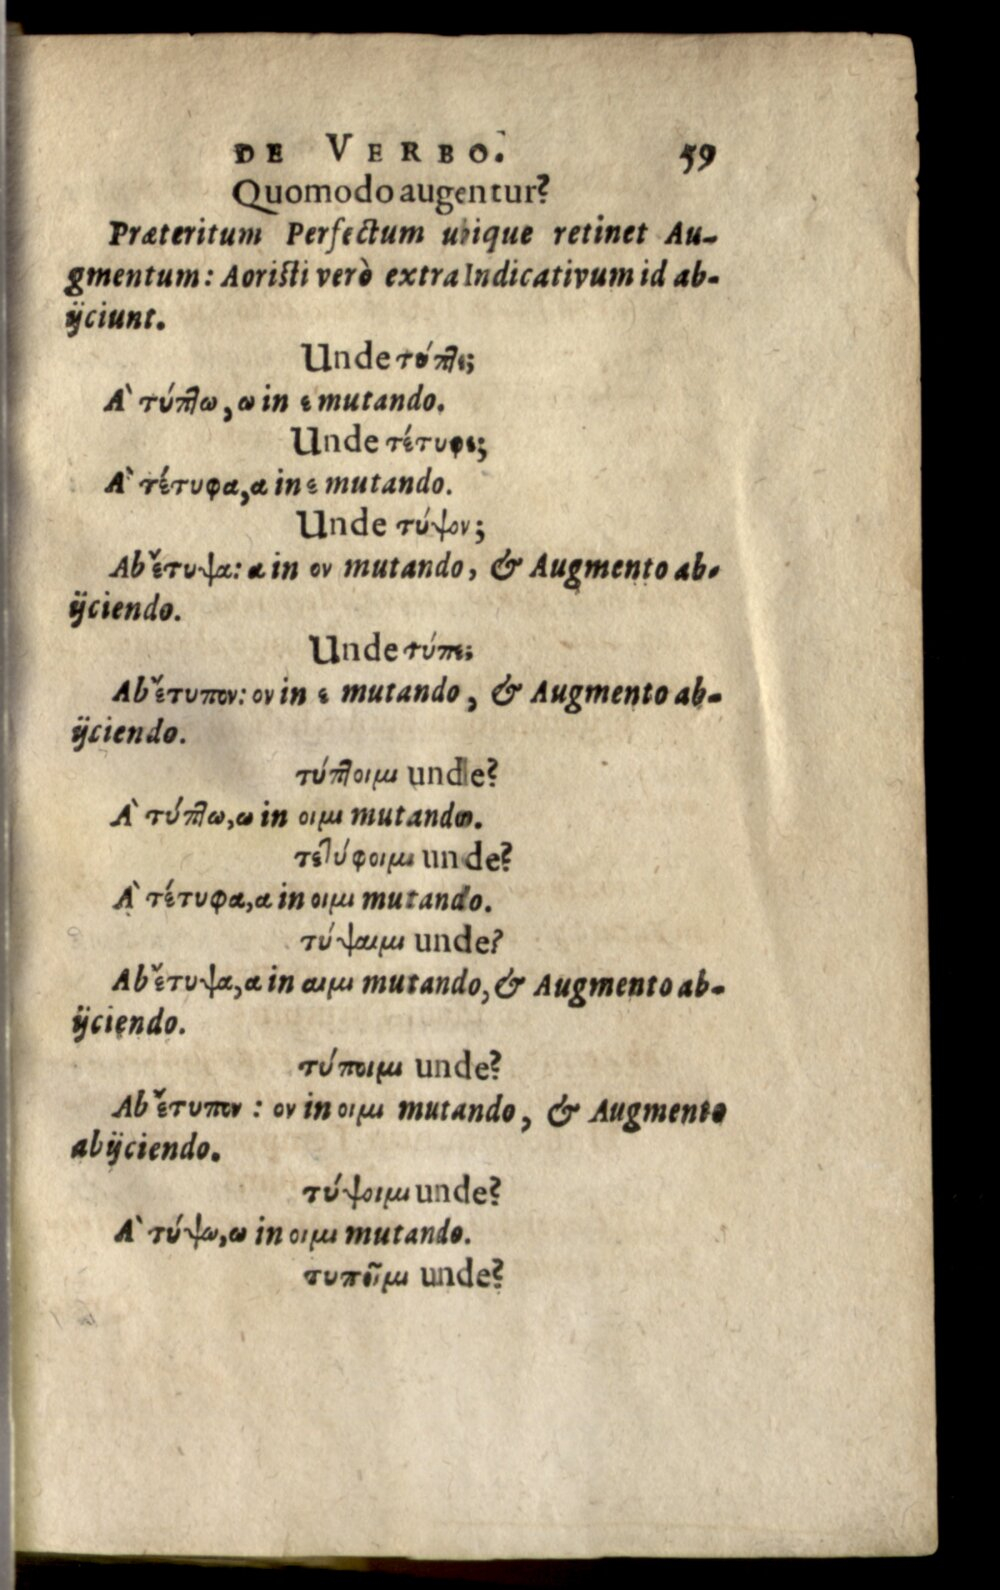 DE VERBO. 59
Quomodo augentur?
Præteritum Perfectum ubique retinet Au-
gmentum: Aoristi verò extra Indicativum id ab-
ijciunt.
Unde τύπτε;
A` τύπτω, ω in ε mutando.
Unde τέτυφε;
A` τέτυφα, α in ε mutando.
Unde τύψον;
Ab ἔτυψα: α in ον mutando, & Augmento ab-
ijciendo.
Unde τύπε;
Ab ἔτυπον: ον in ε mutando, & Augmento ab-
ijciendo.
τύπτοιμι unde?
A` τύπτω, ω in οιμι mutando.
τετύφοιμι unde?
A` τέτυφα, α in οιμι mutando.
τύψαιμι unde?
Ab ἔτυψα, α in αιμι mutando, & Augmento ab-
ijciendo.
τύποιμι unde?
Ab ἔτυπον: ον in οιμι mutando, & Augmento
abijciendo.
τύψοιμι unde?
A` τύψω, ω in οιμι mutando.
τυποῖμι unde?